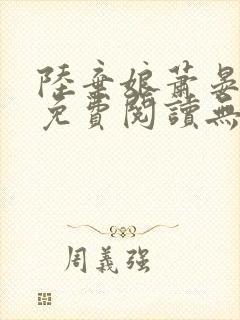 陸棄娘蕭晏
免費閱讀無
周義強